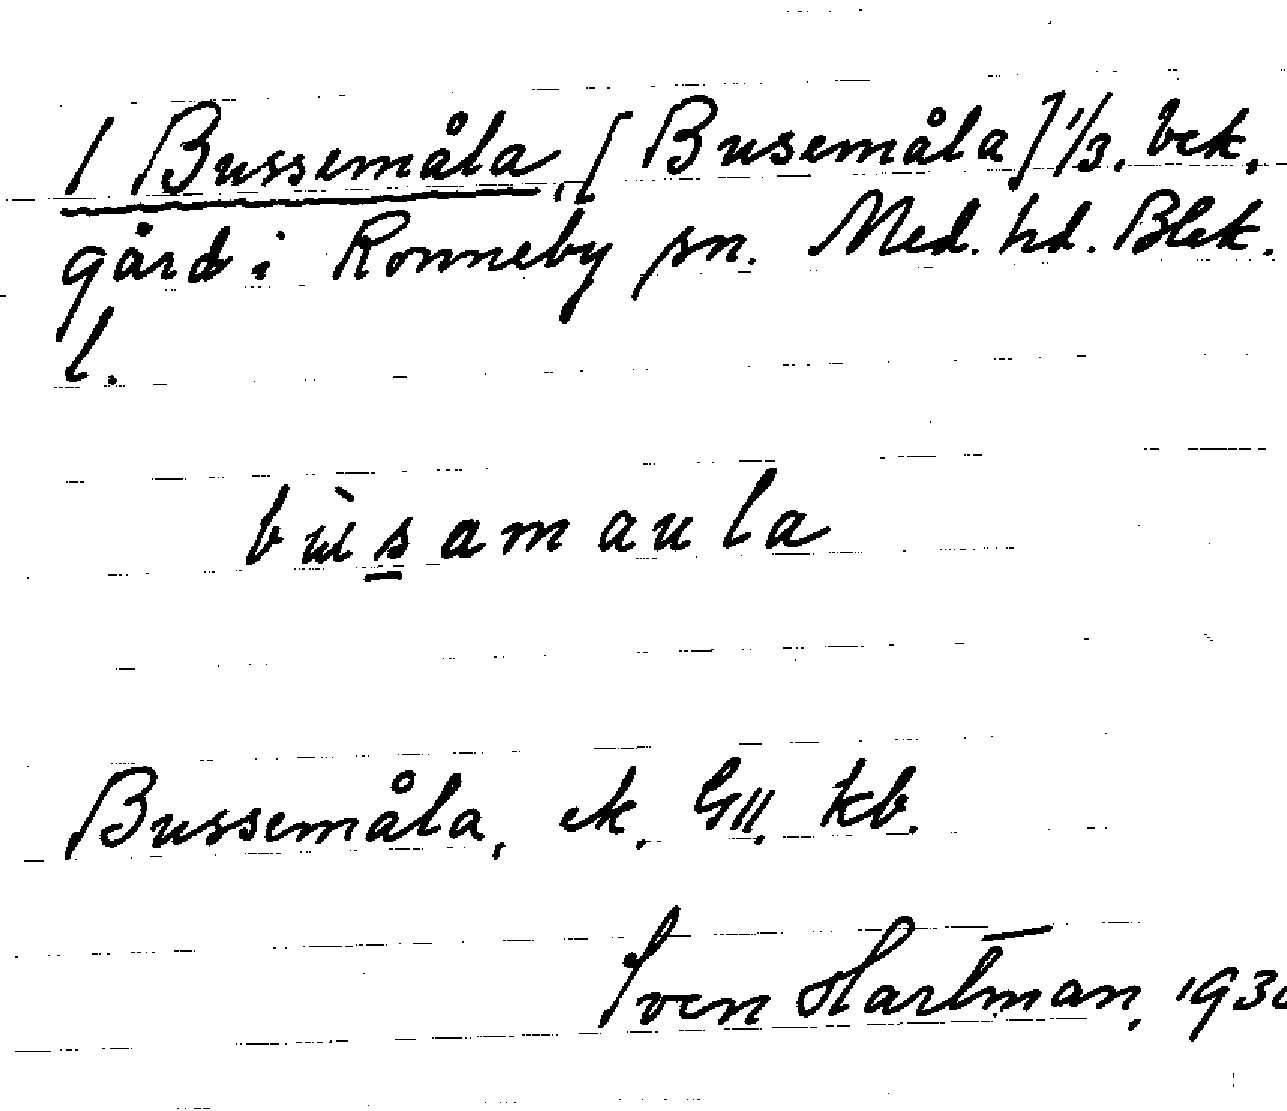 1 Bussemåla, [Busemåla] 1/3. bck,
gård i Ronneby sn. Med. hd. Blek.
l.
bùsamaula
Bussemåla, ek. GII. kb.
Sven Hartman, 193